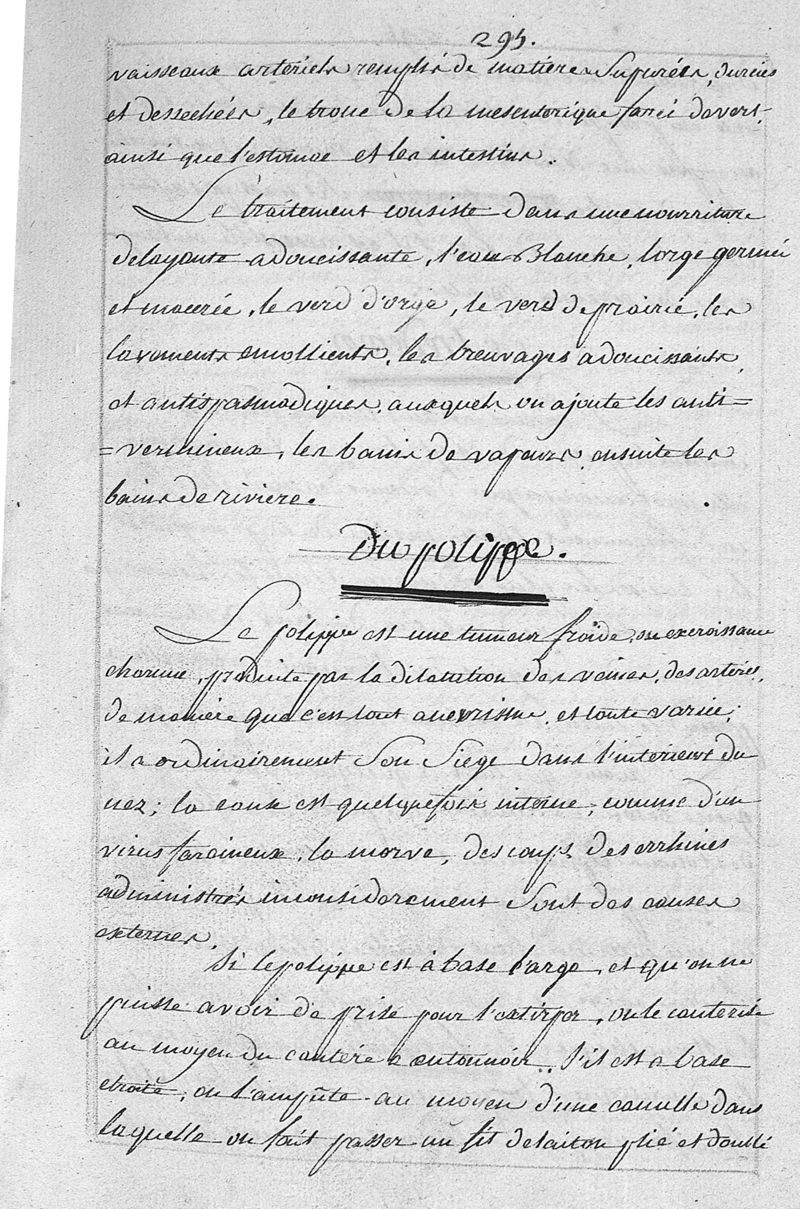 295.
vaisseaux arteriels remplis de matieres Supurées, durcies
et dessechées, le tronc de la mesenterique farci de vers,
ainsi que l'estomac et les intestins.
Le traitement consiste dans une nourriture
delayante adoucissante, l'eau Blanche, lorge germée
et macerée, le verd d'orge, le verd de prairie, les
lavements emollients, les breuvages adoucissants,
et antispasmodiques, auxquels on ajoute les anti=
=vermineux, les bains de vapeurs ensuite les
bains de riviere.
Du polippe.
Le polippe est une tumeur froide, ou excroissance
charnue, produite par la dilatation des veines, des artères,
de manière que c'est tout anevrisme, et toute varice;
il a ordinairement Son Siége dans l'interieur du
nez; la cause est quelquefois interne, comme d'un
virus farcineux, la morve, des coups, des errhines
administrés inconsiderement Sont des causes
externes.
Si le polippe est à base large, et qu'on ne
puisse avoir de prise pour l'extirper, on le cauterise
au moyen du cautère a entonnoir. S'il est a base
etroite, on l'ampûte au moyen d'une canulle dans
laquelle on fait passer un fil de laiton plié et doublé